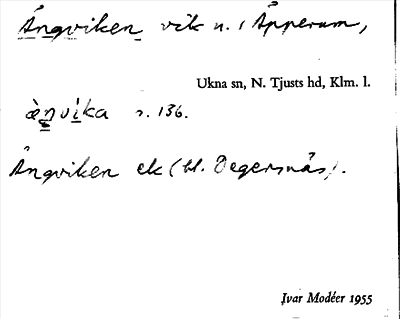 Ängviken vik n. i Äpperum,
Ukna sn, N. Tjusts hd, Klm. l.
æ̀ŋvi̇ka s. 136.
Ängviken ek (bl. Degersnäs).
Ivar Modéer 1955